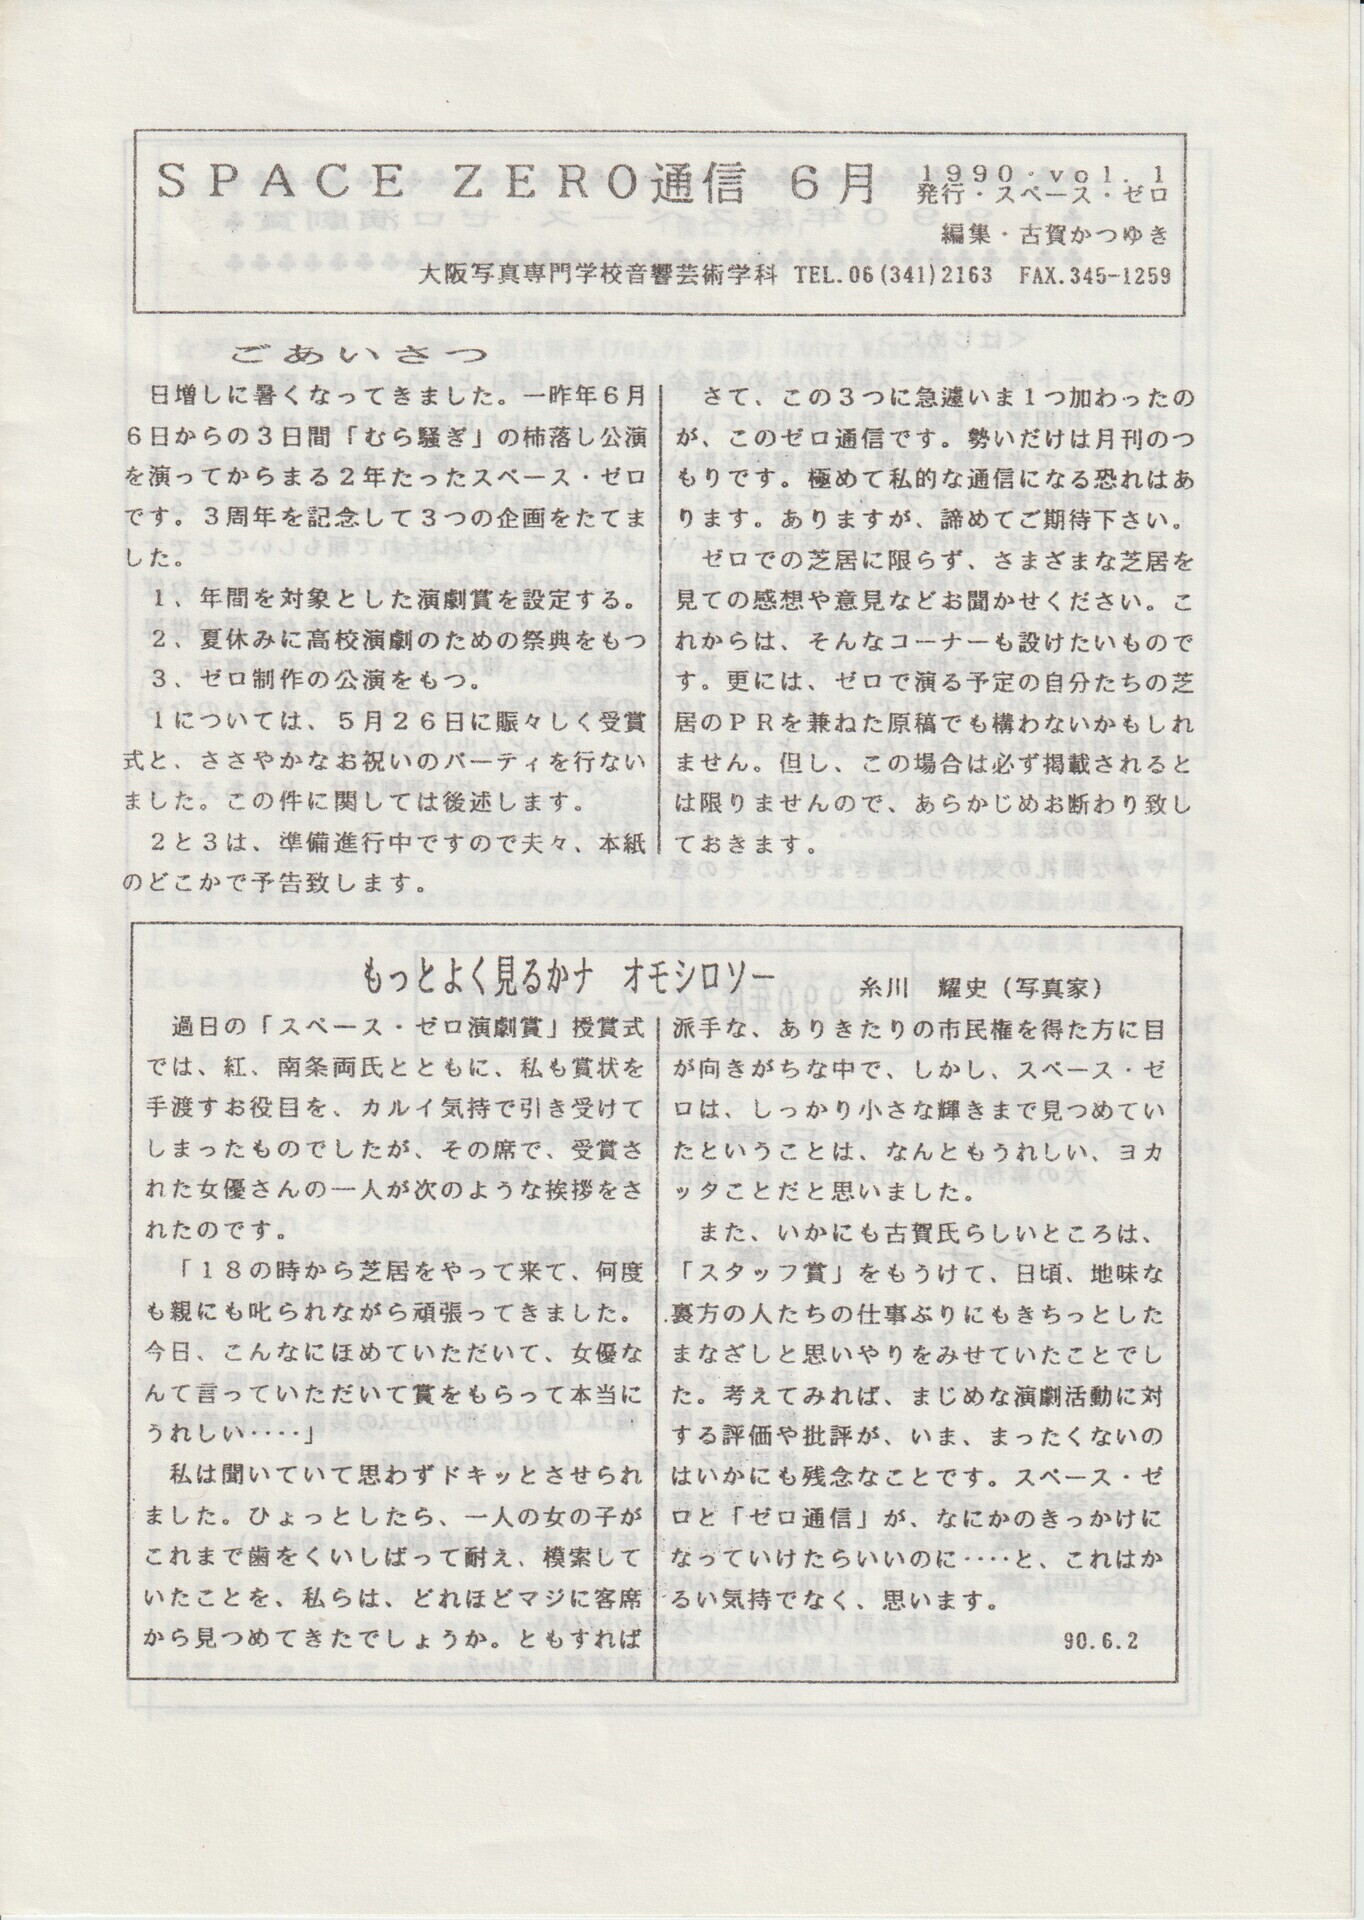 SPACE ZERO通信 6月
1990・vol.1
発行・スペース・ゼロ
編集・古賀かつゆき
大阪写真専門学校音響芸術学科 TEL.06(341)2163 FAX.345-1259
ごあいさつ
日増しに暑くなってきました。一昨年6月
6日からの3日間「むら騒ぎ」の柿落し公演
を演ってからまる2年たったスペース・ゼロ
です。3周年を記念して3つの企画をたてま
した。
1、年間を対象とした演劇賞を設定する。
2、夏休みに高校演劇のための祭典をもつ
3、ゼロ制作の公演をもつ。
1については、5月26日に賑々しく受賞
式と、ささやかなお祝いのパーティを行ない
ました。この件に関しては後述します。
2と3は、準備進行中ですので夫々、本紙
のどこかで予告致します。
さて、この3つに急遽いま1つ加わったの
が、このゼロ通信です。勢いだけは月刊のつ
もりです。極めて私的な通信になる恐れはあ
ります。ありますが、諦めてご期待下さい。
ゼロでの芝居に限らず、さまざまな芝居を
見ての感想や意見などお聞かせください。こ
れからは、そんなコーナーも設けたいもので
す。更には、ゼロで演る予定の自分たちの芝
居のPRを兼ねた原稿でも構わないかもしれ
ません。但し、この場合は必ず掲載されると
は限りませんので、あらかじめお断わり致し
ておきます。
もっとよく見るかナ オモシロソー
糸川 耀史(写真家)
過日の「スペース・ゼロ演劇賞」授賞式
では、紅、南条両氏とともに、私も賞状を
手渡すお役目を、カルイ気持で引き受けて
しまったものでしたが、その席で、受賞さ
れた女優さんの一人が次のような挨拶をさ
れたのです。
「18の時から芝居をやって来て、何度
も親にも叱られながら頑張ってきました。
今日、こんなにほめていただいて、女優な
んて言っていただいて賞をもらって本当に
うれしい・・・・」
私は聞いていて思わずドキッとさせられ
ました。ひょっとしたら、一人の女の子が
これまで歯をくいしばって耐え、模索して
いたことを、私らは、どれほどマジに客席
から見つめてきたでしょうか。ともすれば
派手な、ありきたりの市民権を得た方に目
が向きがちな中で、しかし、スペース・ゼ
ロは、しっかり小さな輝きまで見つめてい
たということは、なんともうれしい、ヨカ
ッタことだと思いました。
また、いかにも古賀氏らしいところは、
「スタッフ賞」をもうけて、日頃、地味な
裏方の人たちの仕事ぶりにもきちっとした
まなざしと思いやりをみせていたことでし
た。考えてみれば、まじめな演劇活動に対
する評価や批評が、いま、まったくないの
はいかにも残念なことです。スペース・ゼ
ロと「ゼロ通信」が、なにかのきっかけに
なっていけたらいいのに・・・・と、これはか
るい気持でなく、思います。
90.6.2